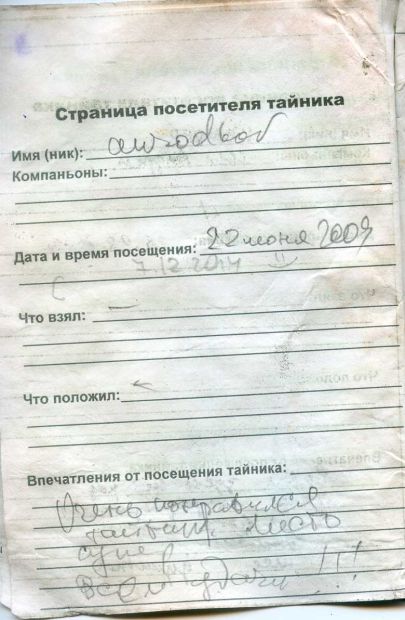 Страница посетителя тайника
Имя (ник):
Компаньоны:
Дата и время посещения: 22 июня 2009
7.12.2014
Что взял: —
Что положил:
Впечатления от посещения тайника:
Очень понравился
тайник. Место
супер
Всем удачи!!!